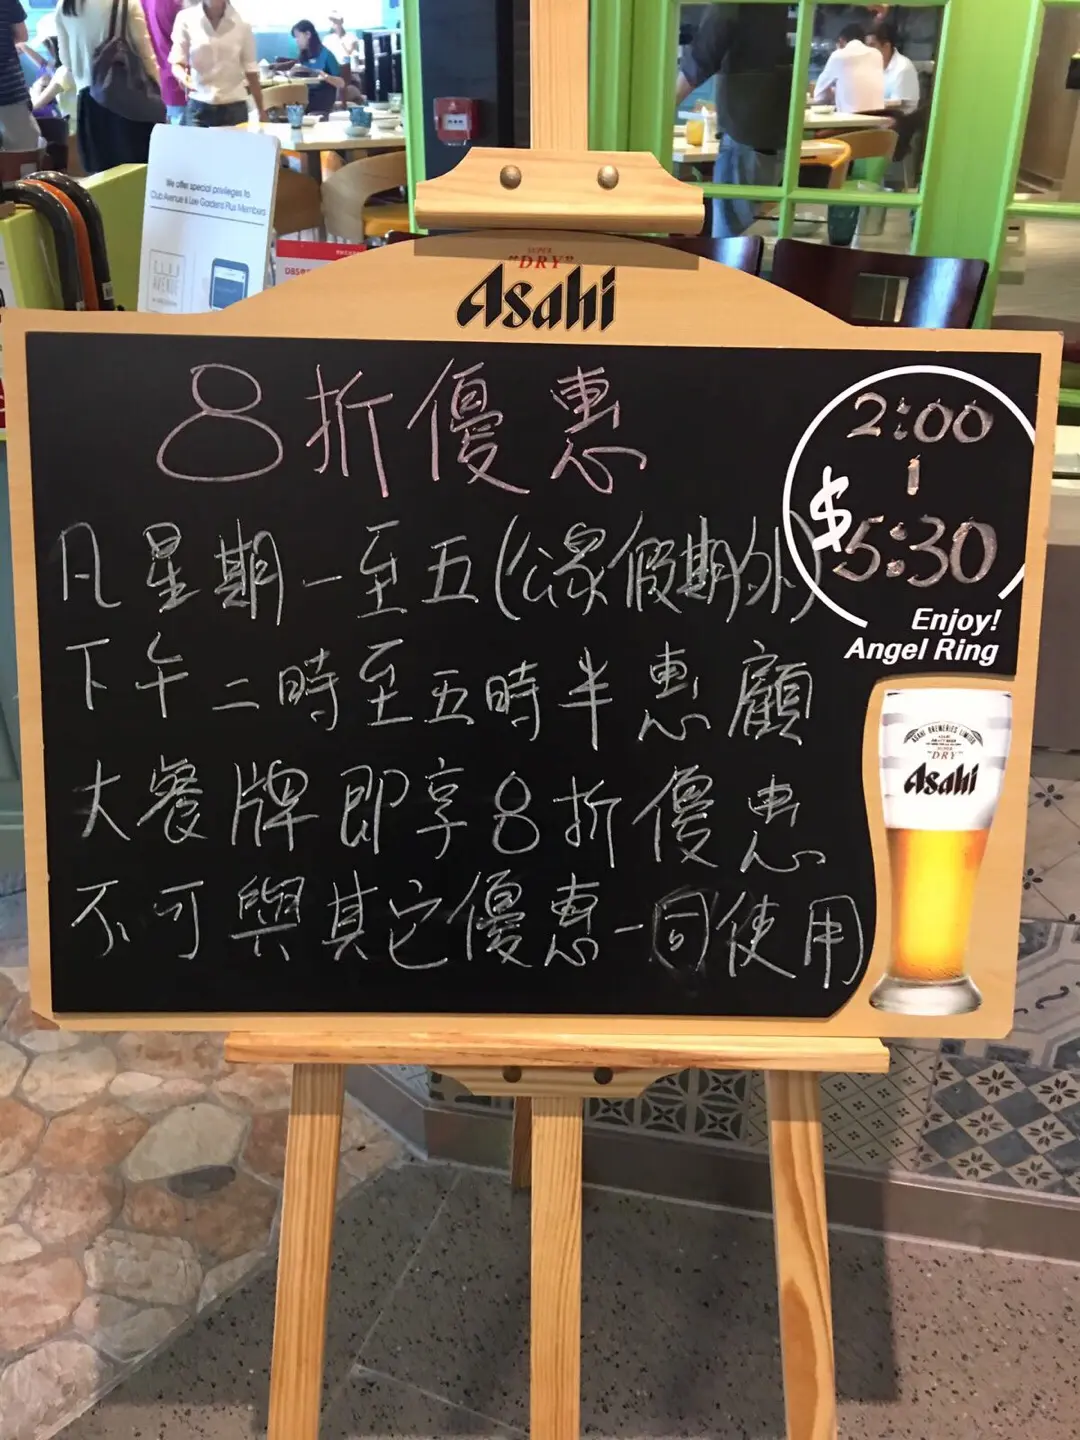 We offer special privileges to
Club Avenue & Lee Gardens Plus Members
SUPER
"DRY"
Asahi
8折優惠
2:00
|
$5:30
凡星期一至五(公眾假期外)
Enjoy!
Angel Ring
下午二時至五時半惠顧
大餐牌即享8折優惠
不可與其它優惠一同使用
ASAHI BREWERIES LIMITED
DRY
Asahi